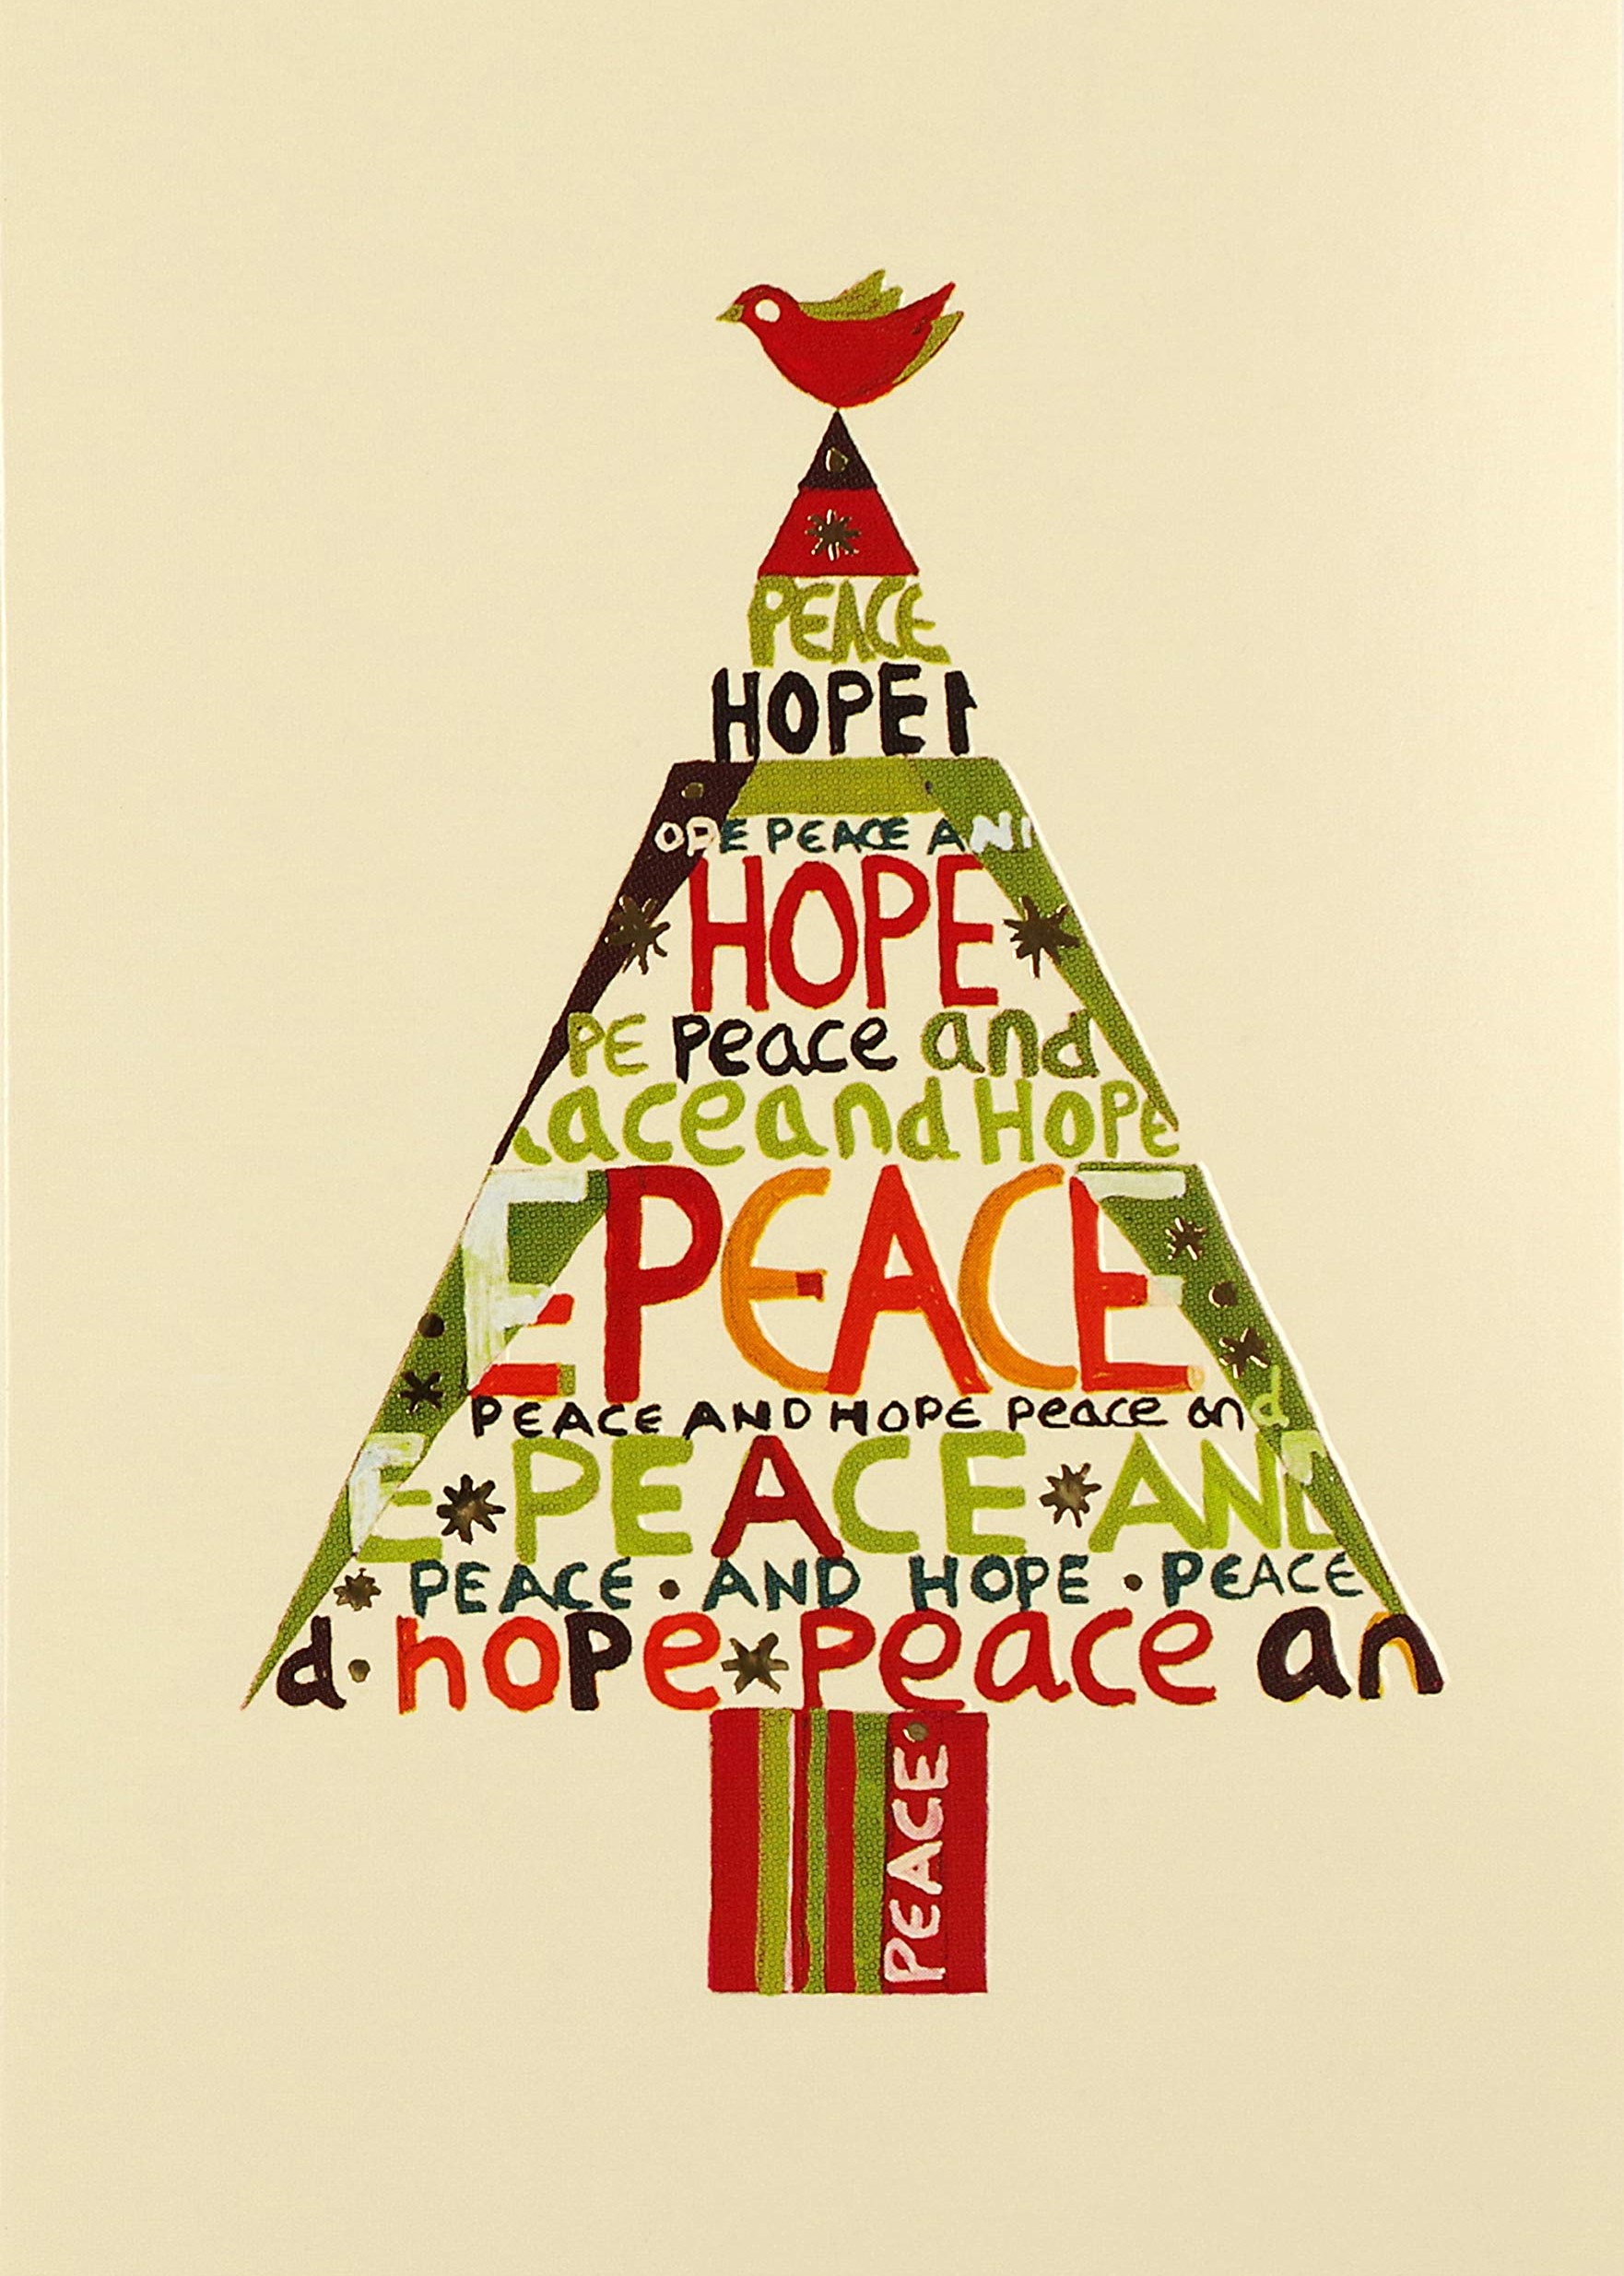 PEACE
HOPE
OPE PEACE AN
HOPE
PE Peace and
aceand HOPE
EPEACE
PEACE AND HOPE Peace and
E PEACE AND
PEACE • AND HOPE • PEACE
d • hope peace an
PEACE